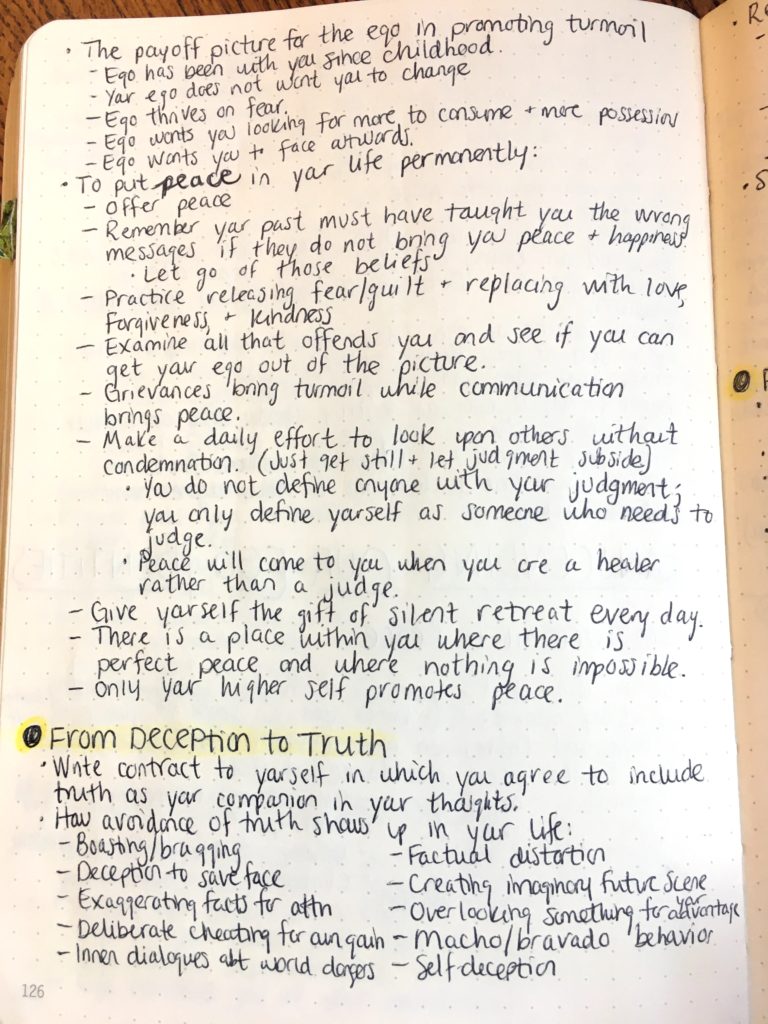 • The payoff picture for the ego in promoting turmoil
- Ego has been with you since childhood.
- Your ego does not want you to change
- Ego thrives on fear.
- Ego wants you looking for more to consume + more possession
- Ego wants you to face outwards.
• To put peace in your life permanently:
- Offer peace
- Remember your past must have taught you the wrong
messages if they do not bring you peace + happiness.
• Let go of those beliefs
- Practice releasing fear/guilt + replacing with love,
forgiveness, + kindness
- Examine all that offends you and see if you can
get your ego out of the picture.
- Grievances bring turmoil while communication
brings peace.
- Make a daily effort to look upon others without
condemnation. (Just get still + let judgment subside)
• You do not define anyone with your judgment;
you only define yourself as someone who needs to
judge.
• Peace will come to you when you are a healer
rather than a judge.
- Give yourself the gift of silent retreat every day.
- There is a place within you where there is
perfect peace and where nothing is impossible.
- Only your higher self promotes peace.
From Deception to Truth
• Write contract to yourself in which you agree to include
truth as your companion in your thoughts.
• How avoidance of truth shows up in your life:
- Boasting/bragging
- Deception to save face
- Exaggerating facts for attn
- Deliberate cheating for own gain
- Inner dialogues abt world dangers
- Factual distortion
- Creating imaginary future scene
- Overlooking something for your advantage
- Macho/bravado behavior
- Self-deception
126